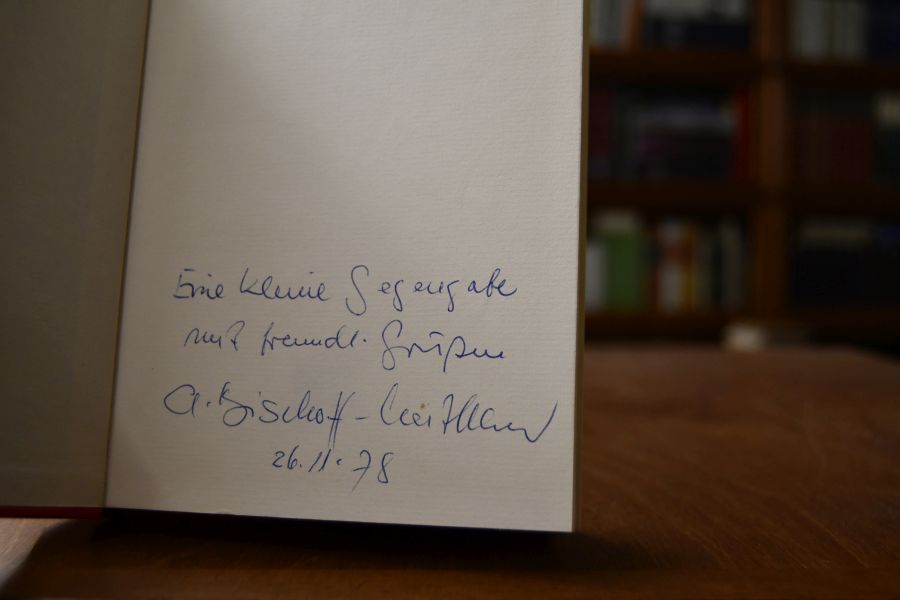 Eine kleine Gegengabe
mit freundl. Grüßen
A. Bischoff-Luithlen
26.11.78